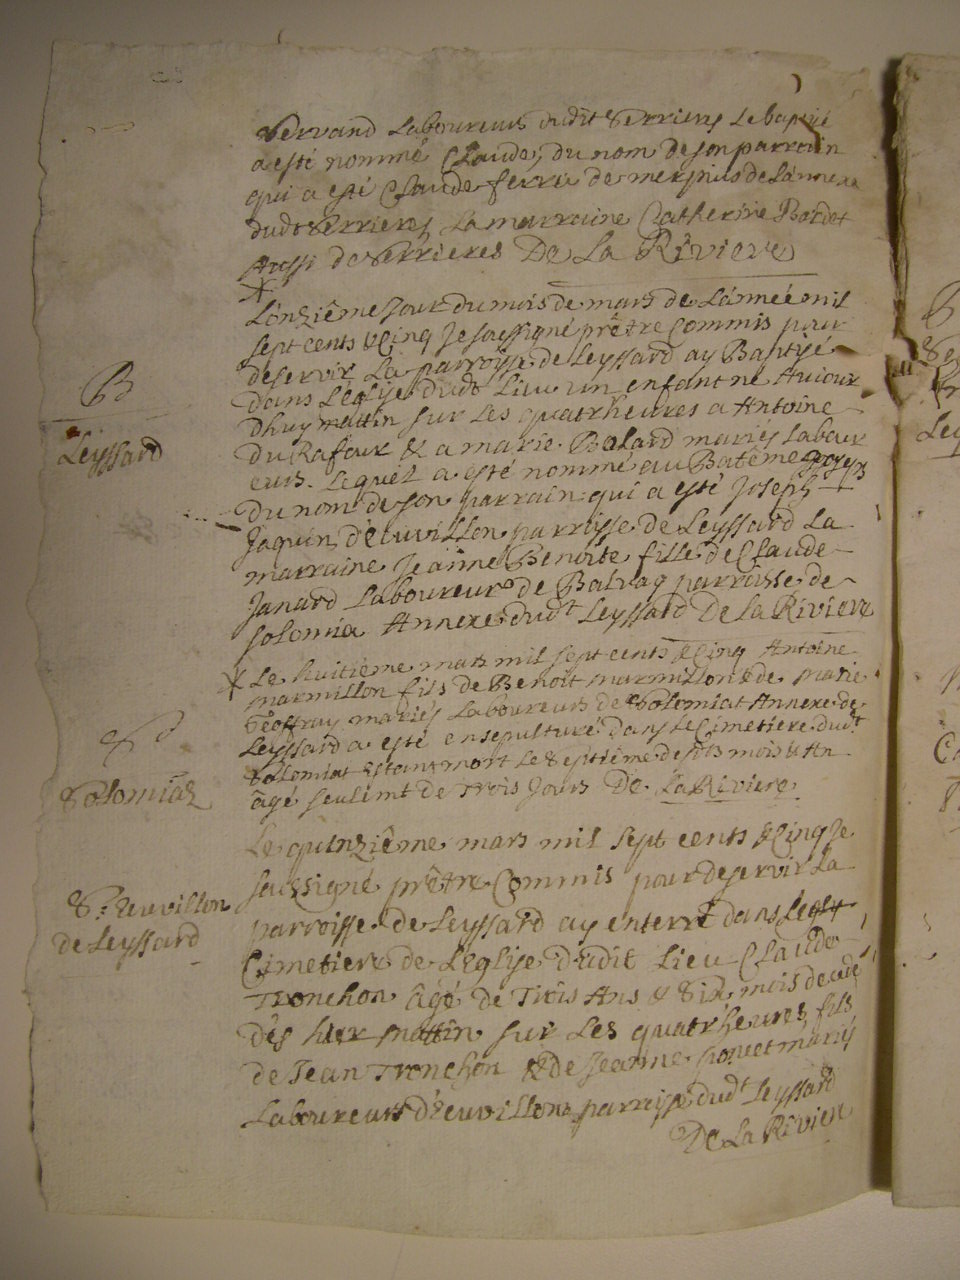 Servand Laboureurs dudit Serrieres Le baptisé
a esté nommé Claude, du nom de son parrain
qui a esté Claude ferra de merpuis de L'annexe
dudt Serrieres La marraine Catherine Bordet
Aussi de Serrieres De La Riviere
*
L'onziême Jour du mois de mars de L'année mil
sept cents & Cinq Je soussigné prêtre Commis pour
deservir La parroisse de Leyssard ay Baptisé
dans L'eglise dudt Lieu un enfant né Aujour
B
dhuy mattin sur Les quatr'heures a Antoine
Leyssard
Du Rafour & a marie Balard mariés Labour
eurs. Lequel a esté nommé au Batême Joseph
Du nom de son parrain qui a esté Joseph
Jaquin d'Euvillon parroisse de Leyssard La
marraine Jeanne Benoite fille de Claude
Janard Laboureur de Balvay parroisse de
Solomia Annexe dudt Leyssard De La Riviere
* Le huitiême mars mil sept cents & Cinq Antoine
marmillon fils de Benoit marmillon & de marie
Geoffray mariés Laboureurs de Solomiat Annexe de
S
Leyssard a esté ensepulturé dans Le Cimetiere dudt
Solomiat Estant mort Le Septiême desds mois & An
Solomiat
âgé seulemt de Trois Jours De LaRiviere
Le quinziême mars mil sept cents & Cinq Je
soussigné prêtre Commis pour deservir La
S. Euvillon
parroisse de Leyssard ay enterré dans Le
de Leyssard
Cimetiere de L'Eglise dudit Lieu Claude
Tronchon âgé de Trois Ans & Six mois decedé
dês hier mattin sur Les quatr'heures, fils
de Jean Tronchon & de Jeanne poncet mariés
Laboureurs d'Euvillon parroisse dudt Leyssard
De La Riviere